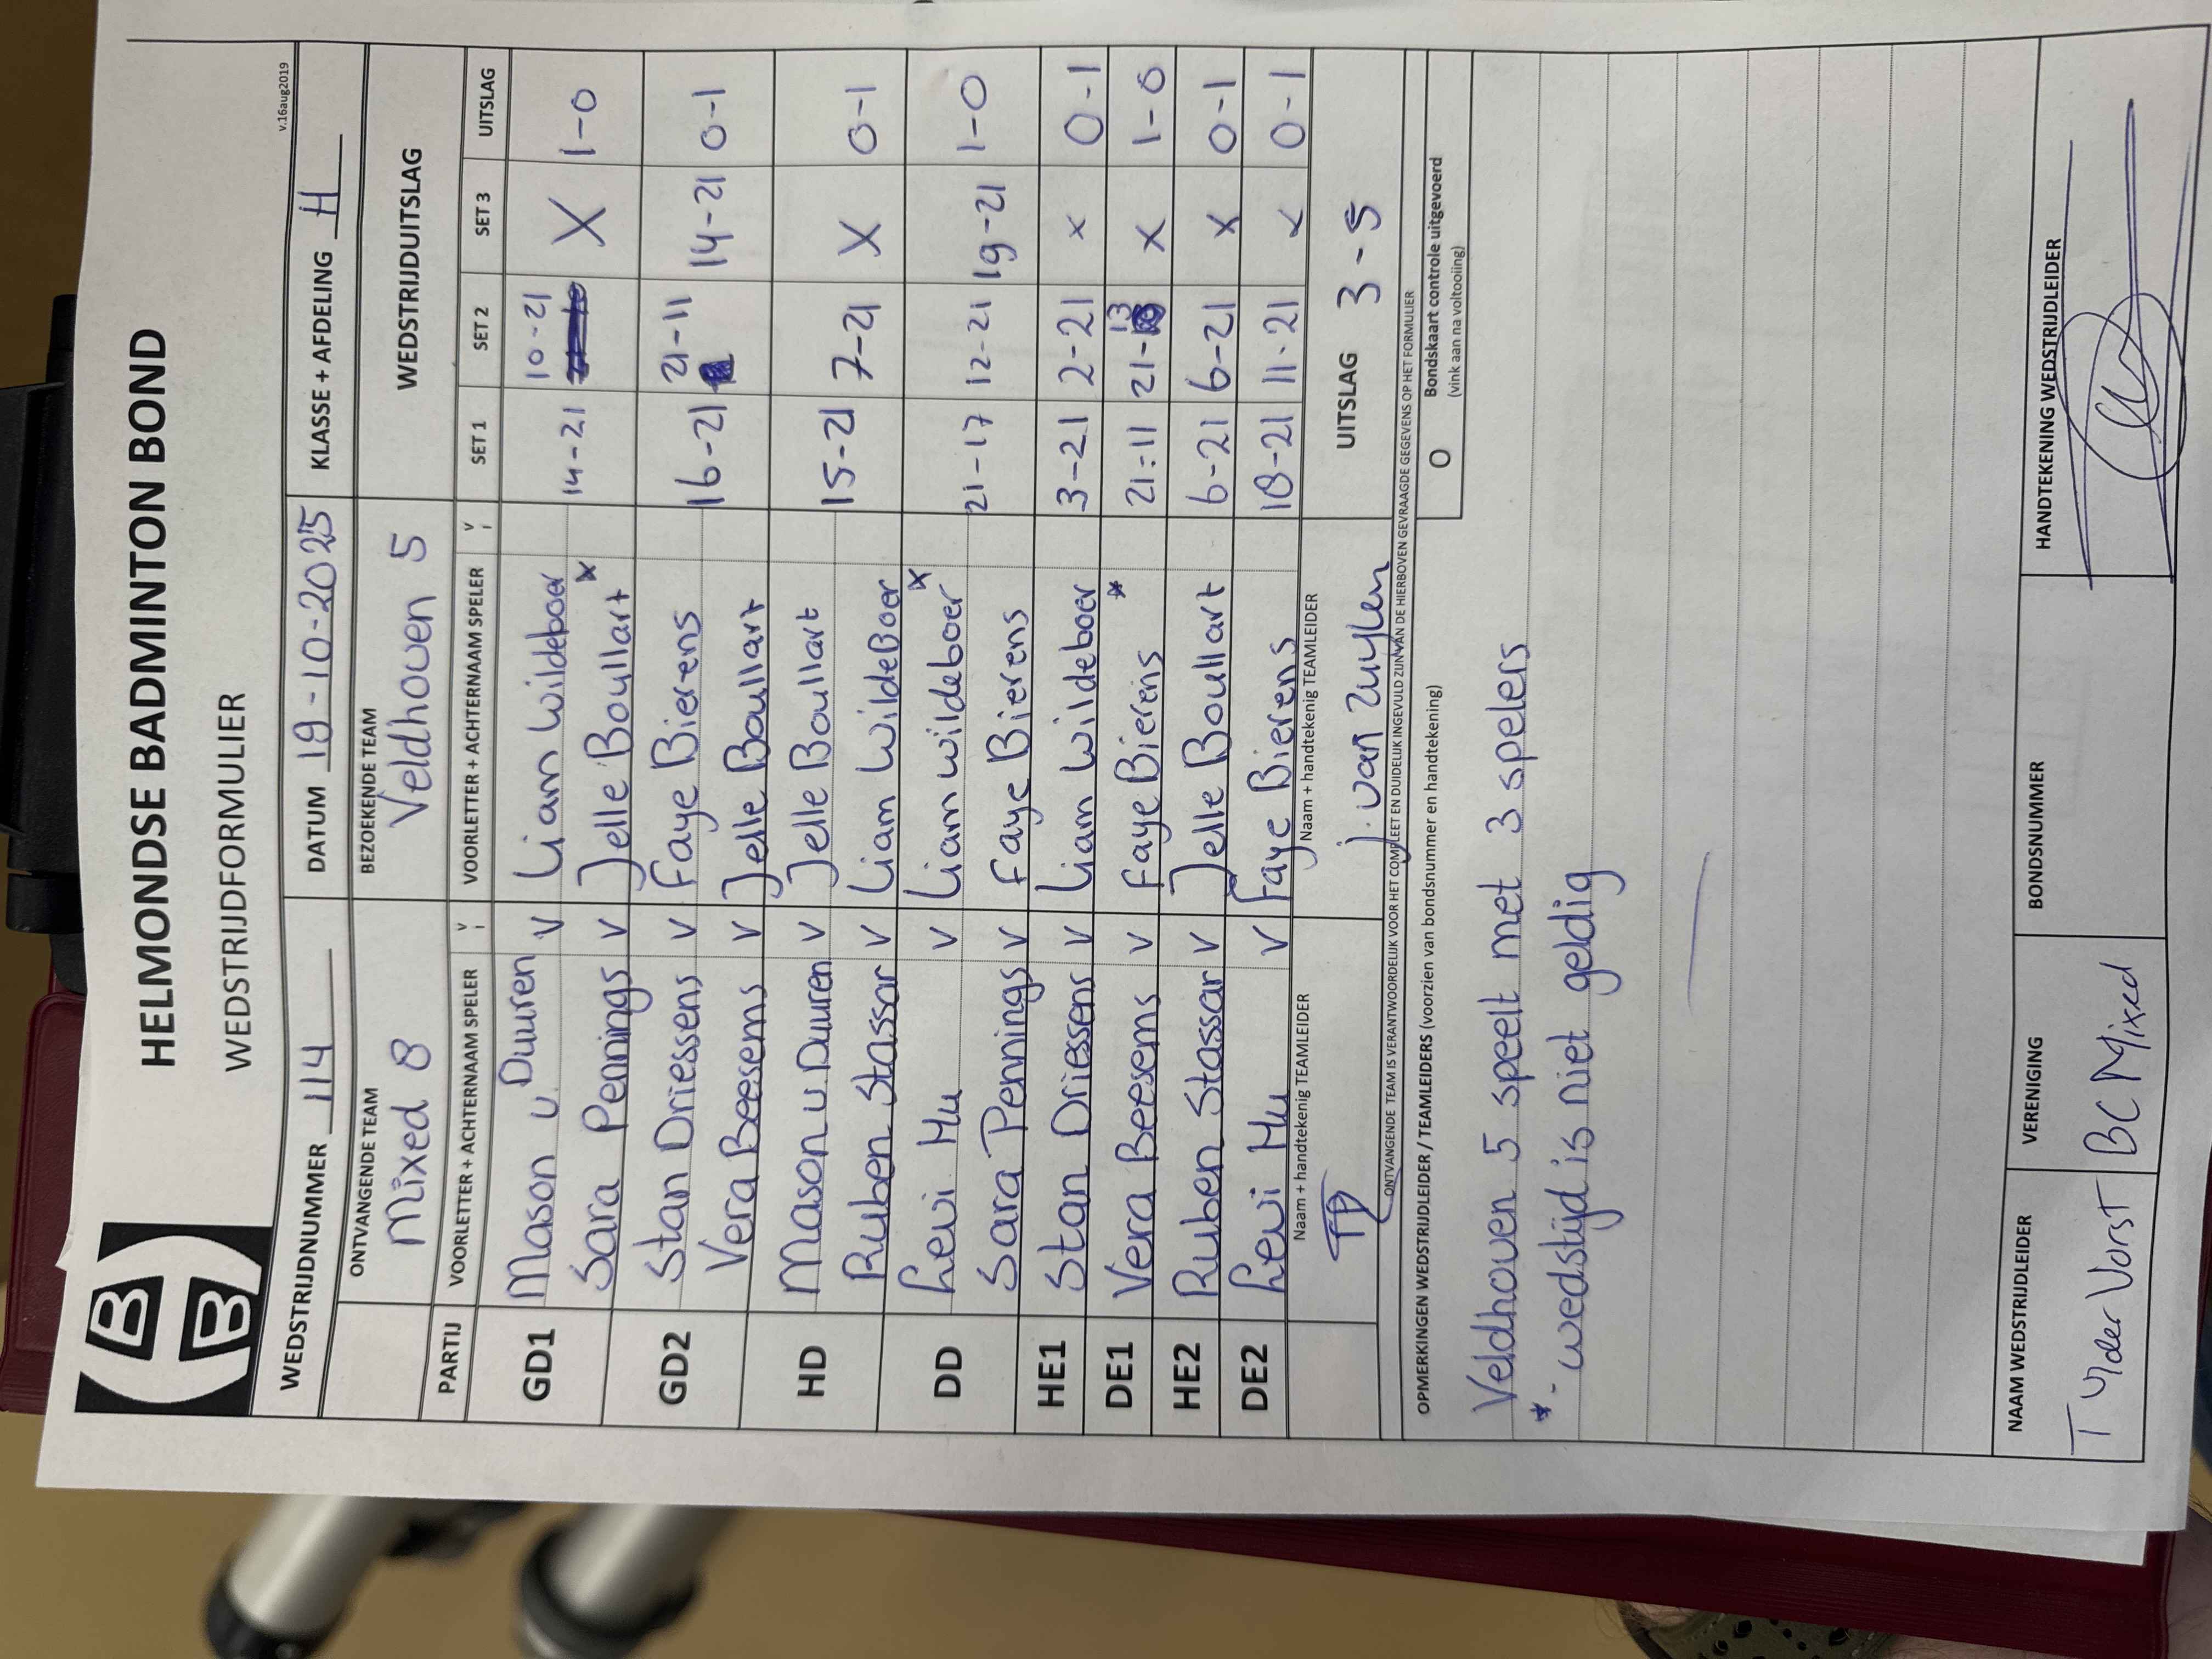 HELMONDSE BADMINTON BOND
WEDSTRIJDFORMULIER
v.16aug2019
WEDSTRIJDNUMMER 114 DATUM 19-10-2025 KLASSE + AFDELING H
ONTVANGENDE TEAM BEZOEKENDE TEAM WEDSTRIJDUITSLAG
Mixed 8 Veldhoven 5
PARTIJ VOORLETTER + ACHTERNAAM SPELER V VOORLETTER + ACHTERNAAM SPELER V SET 1 SET 2 SET 3 UITSLAG
GD1 Mason v Duuren V Liam Wildeboer 14-21 10-21 X 1-0
Sara Pennings V Jelle Boullart *
GD2 Stan Driessens V Faye Bierens 16-21 21-11 14-21 0-1
Vera Beesems V Jelle Boullart
HD Mason v. Duuren V Jelle Boullart 15-21 7-21 X 0-1
Ruben Stassar V Liam WildeBoer
DD Lewi Hu V Liam wildeboer * 21-17 12-21 19-21 1-0
Sara Pennings V Faye Bierens
HE1 Stan Driessens V Liam Wildeboer 3-21 2-21 x 0-1
DE1 Vera Beesems V Faye Bierens * 21-11 21-13 x 1-0
HE2 Ruben Stassar V Jelle Boullart 6-21 6-21 x 0-1
DE2 Lewi Hu V Faye Bierens 18-21 11-21 x 0-1
Naam + handtekenig TEAMLEIDER Naam + handtekenig TEAMLEIDER UITSLAG 3-5
j. van Zuylen
ONTVANGENDE TEAM IS VERANTWOORDELIJK VOOR HET COMPLEET EN DUIDELIJK INGEVULD ZIJN VAN DE HIERBOVEN GEVRAAGDE GEGEVENS OP HET FORMULIER
OPMERKINGEN WEDSTRIJDLEIDER / TEAMLEIDERS (voorzien van bondsnummer en handtekening) O Bondskaart controle uitgevoerd
(vink aan na voltooiing)
Veldhoven 5 speelt met 3 spelers
* - wedstijd is niet geldig
NAAM WEDSTRIJDLEIDER VERENIGING BONDSNUMMER HANDTEKENING WEDSTRIJDLEIDER
T v der Vorst BC Mixed